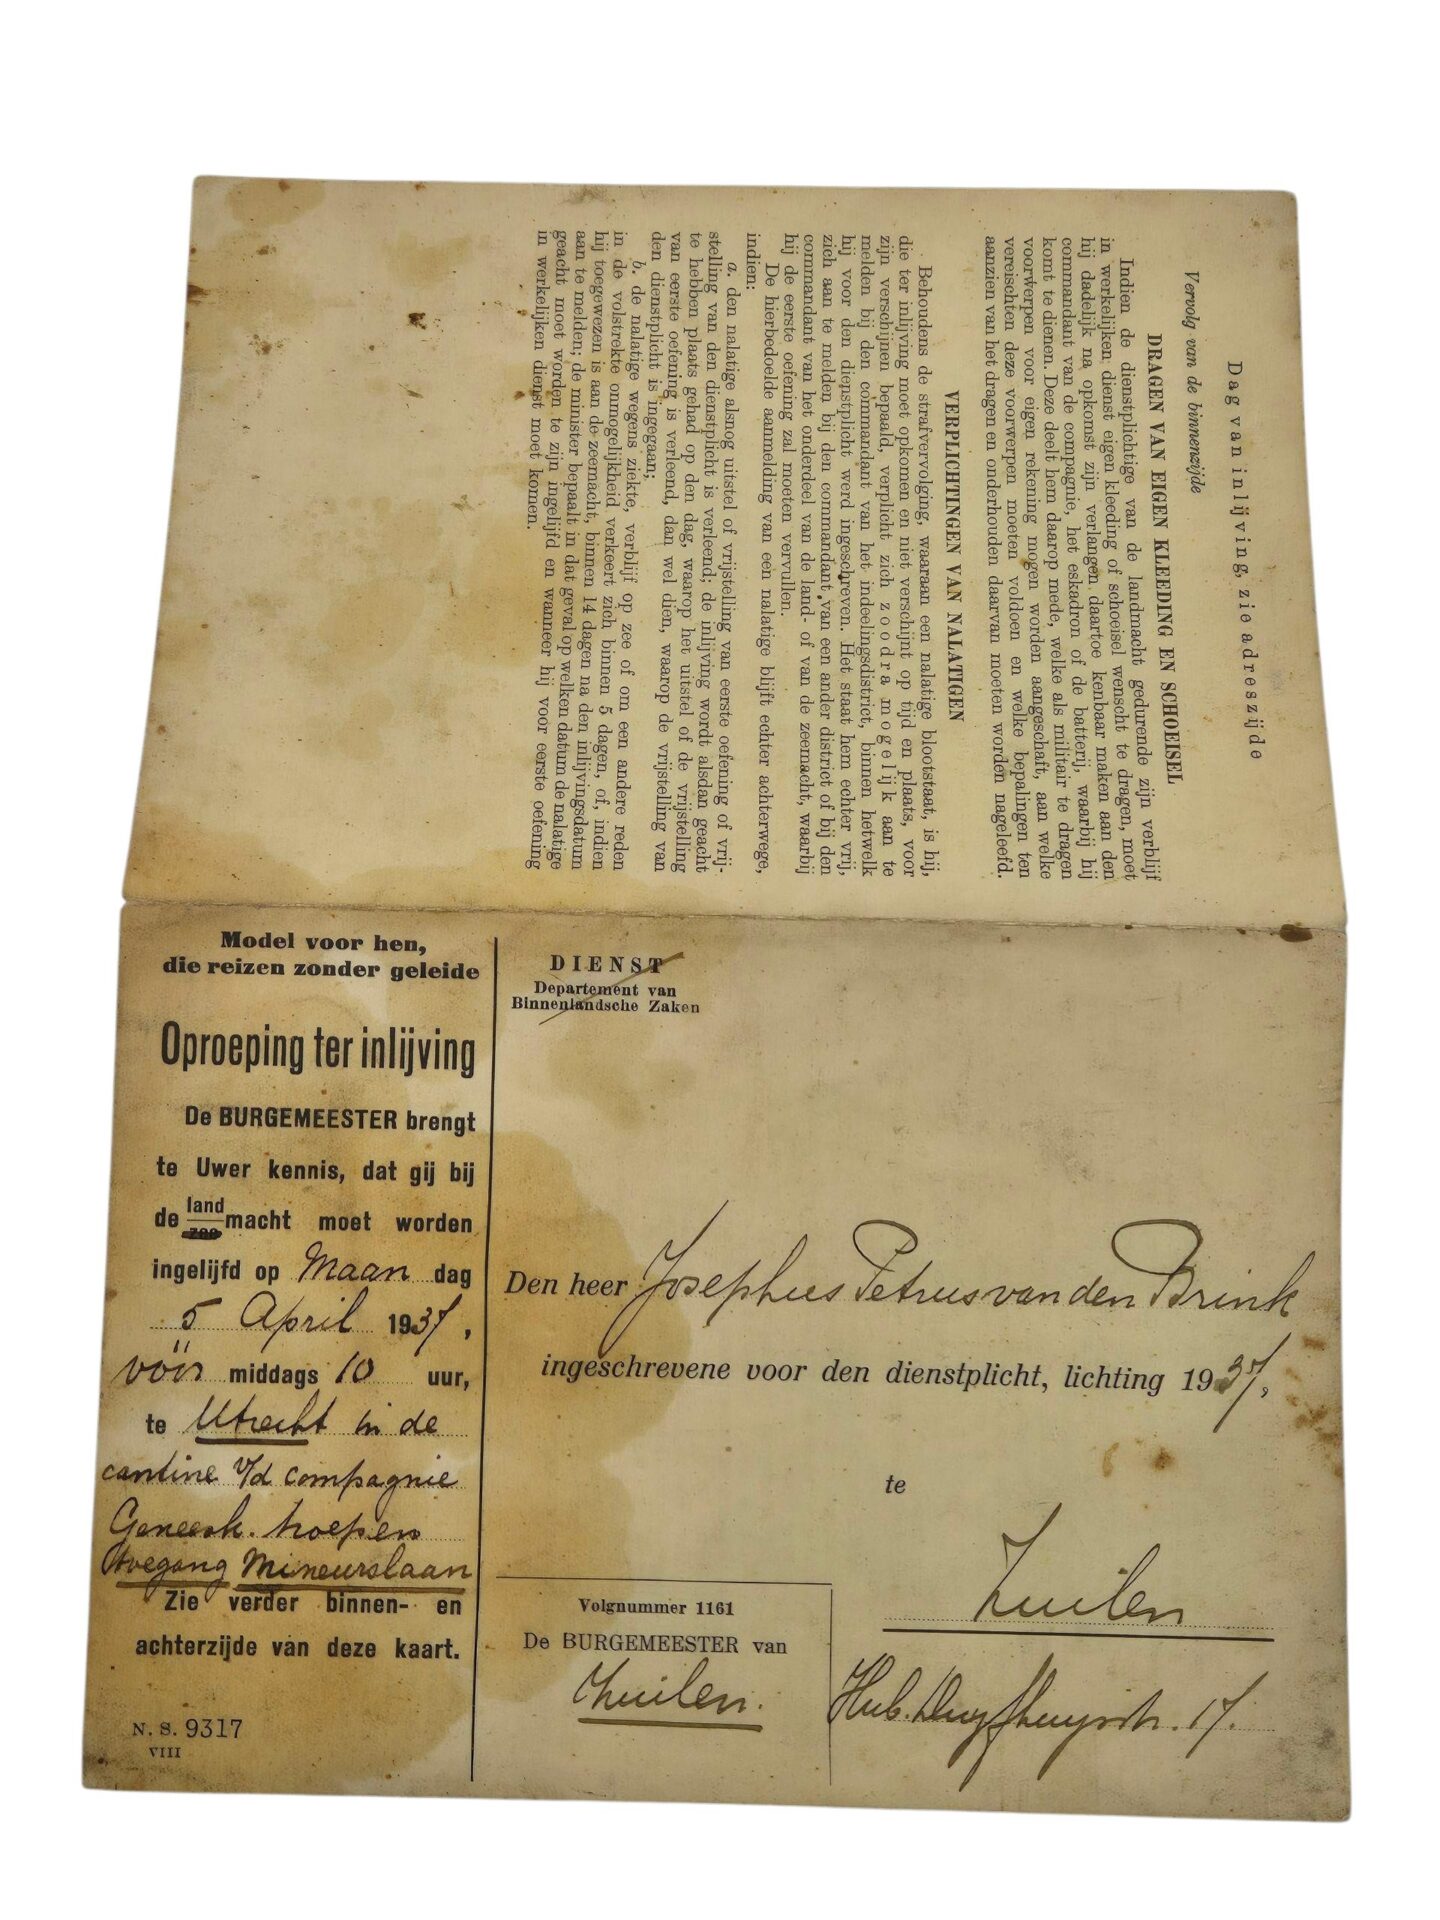 Dag van inlijving, zie adreszijde
Vervolg van de binnenzijde
DRAGEN VAN EIGEN KLEEDING EN SCHOEISEL
Indien de dienstplichtige van de landmacht gedurende zijn verblijf
in werkelijken dienst eigen kleeding of schoeisel wenscht te dragen, moet
hij dadelijk na opkomst zijn verlangen daartoe kenbaar maken aan den
commandant van de compagnie, het eskadron of de batterij, waarbij hij
komt te dienen. Deze deelt hem daarop mede, welke als militair te dragen
voorwerpen voor eigen rekening mogen worden aangeschaft, aan welke
vereischten deze voorwerpen moeten voldoen en welke bepalingen ten
aanzien van het dragen en onderhouden daarvan moeten worden nageleefd.
VERPLICHTINGEN VAN NALATIGEN
Behoudens de strafvervolging, waaraan een nalatige blootstaat, is hij,
die ter inlijving moet opkomen en niet verschijnt op tijd en plaats, voor
zijn verschijnen bepaald, verplicht zich zoodra mogelijk aan te
melden bij den commandant van het indeelingsdistrict, binnen hetwelk
hij voor den dienstplicht werd ingeschreven. Het staat hem echter vrij,
zich aan te melden bij den commandant van een ander district of bij den
commandant van het onderdeel van de land- of van de zeemacht, waarbij
hij de eerste oefening zal moeten vervullen.
De hierbedoelde aanmelding van een nalatige blijft echter achterwege,
indien:
a. den nalatige alsnog uitstel of vrijstelling van eerste oefening of vrij-
stelling van den dienstplicht is verleend; de inlijving wordt alsdan geacht
te hebben plaats gehad op den dag, waarop het uitstel of de vrijstelling
van eerste oefening is verleend, dan wel dien, waarop de vrijstelling van
den dienstplicht is ingegaan;
b. de nalatige wegens ziekte, verblijf op zee of om een andere reden
in de volstrekte onmogelijkheid verkeert zich binnen 5 dagen, of, indien
hij toegewezen is aan de zeemacht, binnen 14 dagen na den inlijvingsdatum
aan te melden; de minister bepaalt in dat geval op welken datum de nalatige
geacht moet worden te zijn ingelijfd en wanneer hij voor eerste oefening
in werkelijken dienst moet komen.
Model voor hen,
die reizen zonder geleide
Oproeping ter inlijving
De BURGEMEESTER brengt
te Uwer kennis, dat gij bij
de land/zee macht moet worden
ingelijfd op Maan dag
5 April 1937,
vóór middags 10 uur,
te Utrecht in de
cantine v/d compagnie
Geneesk. troepen
toegang Mineurslaan
Zie verder binnen- en
achterzijde van deze kaart.
N. S. 9317
VIII
DIENST
Departement van
Binnenlandsche Zaken
Den heer Josephus Petrus van den Brink
ingeschrevene voor den dienstplicht, lichting 1937,
te
Zuilen
Hub. Duyfhuysstr. 17.
Volgnummer 1161
De BURGEMEESTER van
Zuilen.